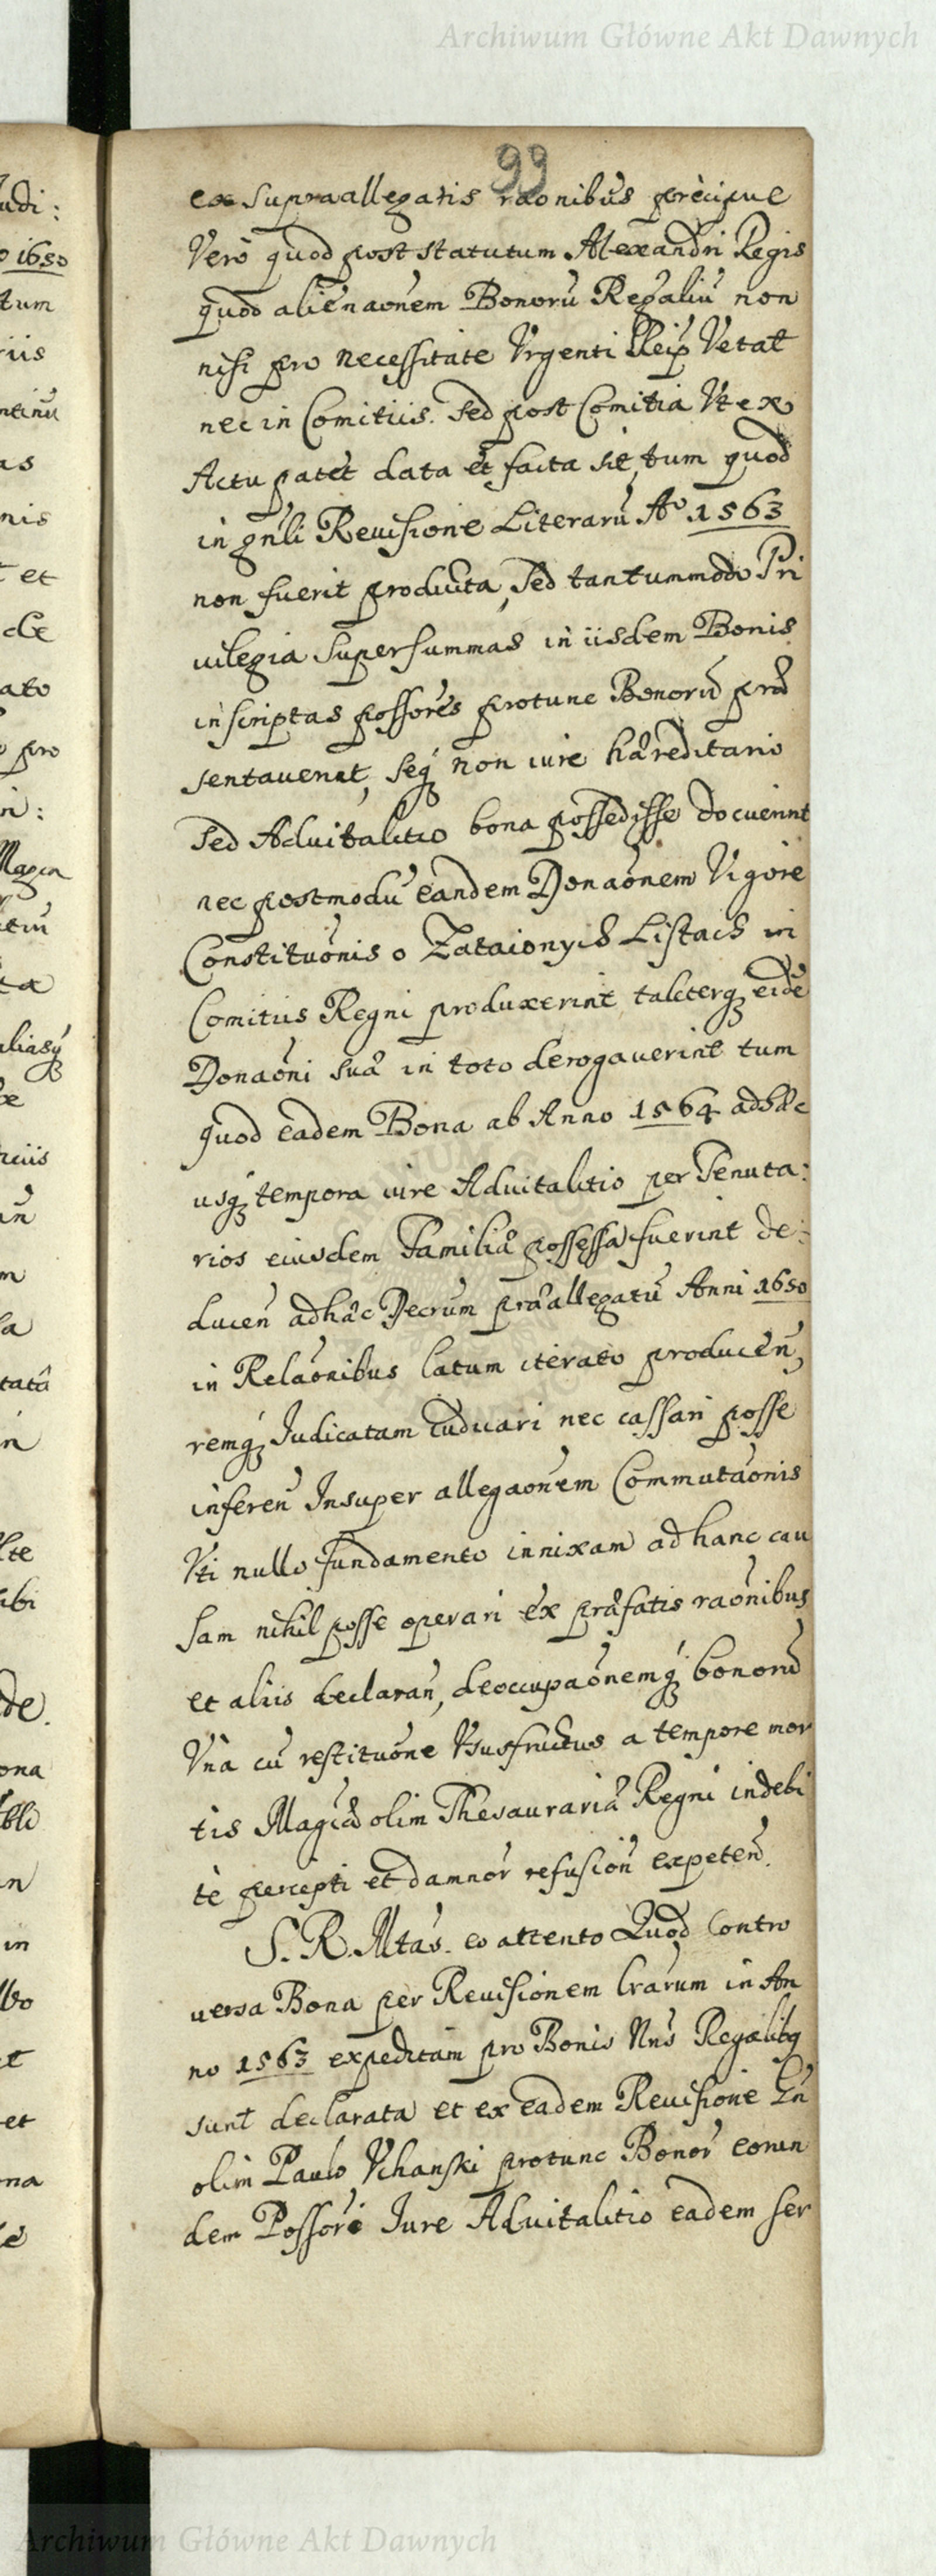 Archiwum Główne Akt Dawnych
99
ex supraallegatis raonibus precipue
Vero quod post statutum Alexandri Regis
quod alienaonem Bonorũ Regaliũ non
nisi pro necessitate Urgenti Reip Vetat
nec in Comitiis. sed post Comitia Vt ex
Actu patet data et facta sit, tum quod
in gnli Revisione Literarũ Aº 1563
non fuerit producta, sed tantummodo Pri
uilegia super summas in iisdem Bonis
inscriptas possores protunc Bonorũ præ
sentauerint, seq non iure hæreditario
sed Aduitalitio bona possedisse docuerint
nec postmodũ eandem Donaonem Vigore
Constituonis o Zataionych Listach in
Comitiis Regni produxerint taliterq eidẽ
Donaoni suæ in toto derogauerint tum
quod eadem Bona ab Anno 1564 adhæc
usq tempora iure Aduitalitio per Tenuta:
rios eiusdem Familiæ possessa fuerint de:
ducen adhæc Decrum præallegatũ Anni 1650
in Relaonibus latum iterato producen,
remq Iudicatam euduari nec cassari posse
inferen Insuper allegaonem Commutaonis
Vti nullo fundamento innixam ad hanc cau
sam nihil posse operari ex præfatis raonibus
et aliis declaran, deoccupaonemq bonorũ
Vna cũ restituone Vsusfructus a tempore mor
tis Magcæ olim Thesaurariæ Regni indebi
te percepti et damnor refusion expeten.
S. R. Mtas. eo attento Quod Contro
uersa Bona per Reuisionem lrarum in An
no 1563 expeditam pro Bonis Nris Regalibq
sunt declarata et ex eadem Reuisione Gn
olim Paulo Vchanski protunc Bonor eorun
dem Possori Iure Aduitalitio eadem ser
udi:
1650
tum
riis
as
nis
et
de
ato
pro
Magcn
de.
ona
in
et
na
Archiwum Główne Akt Dawnych